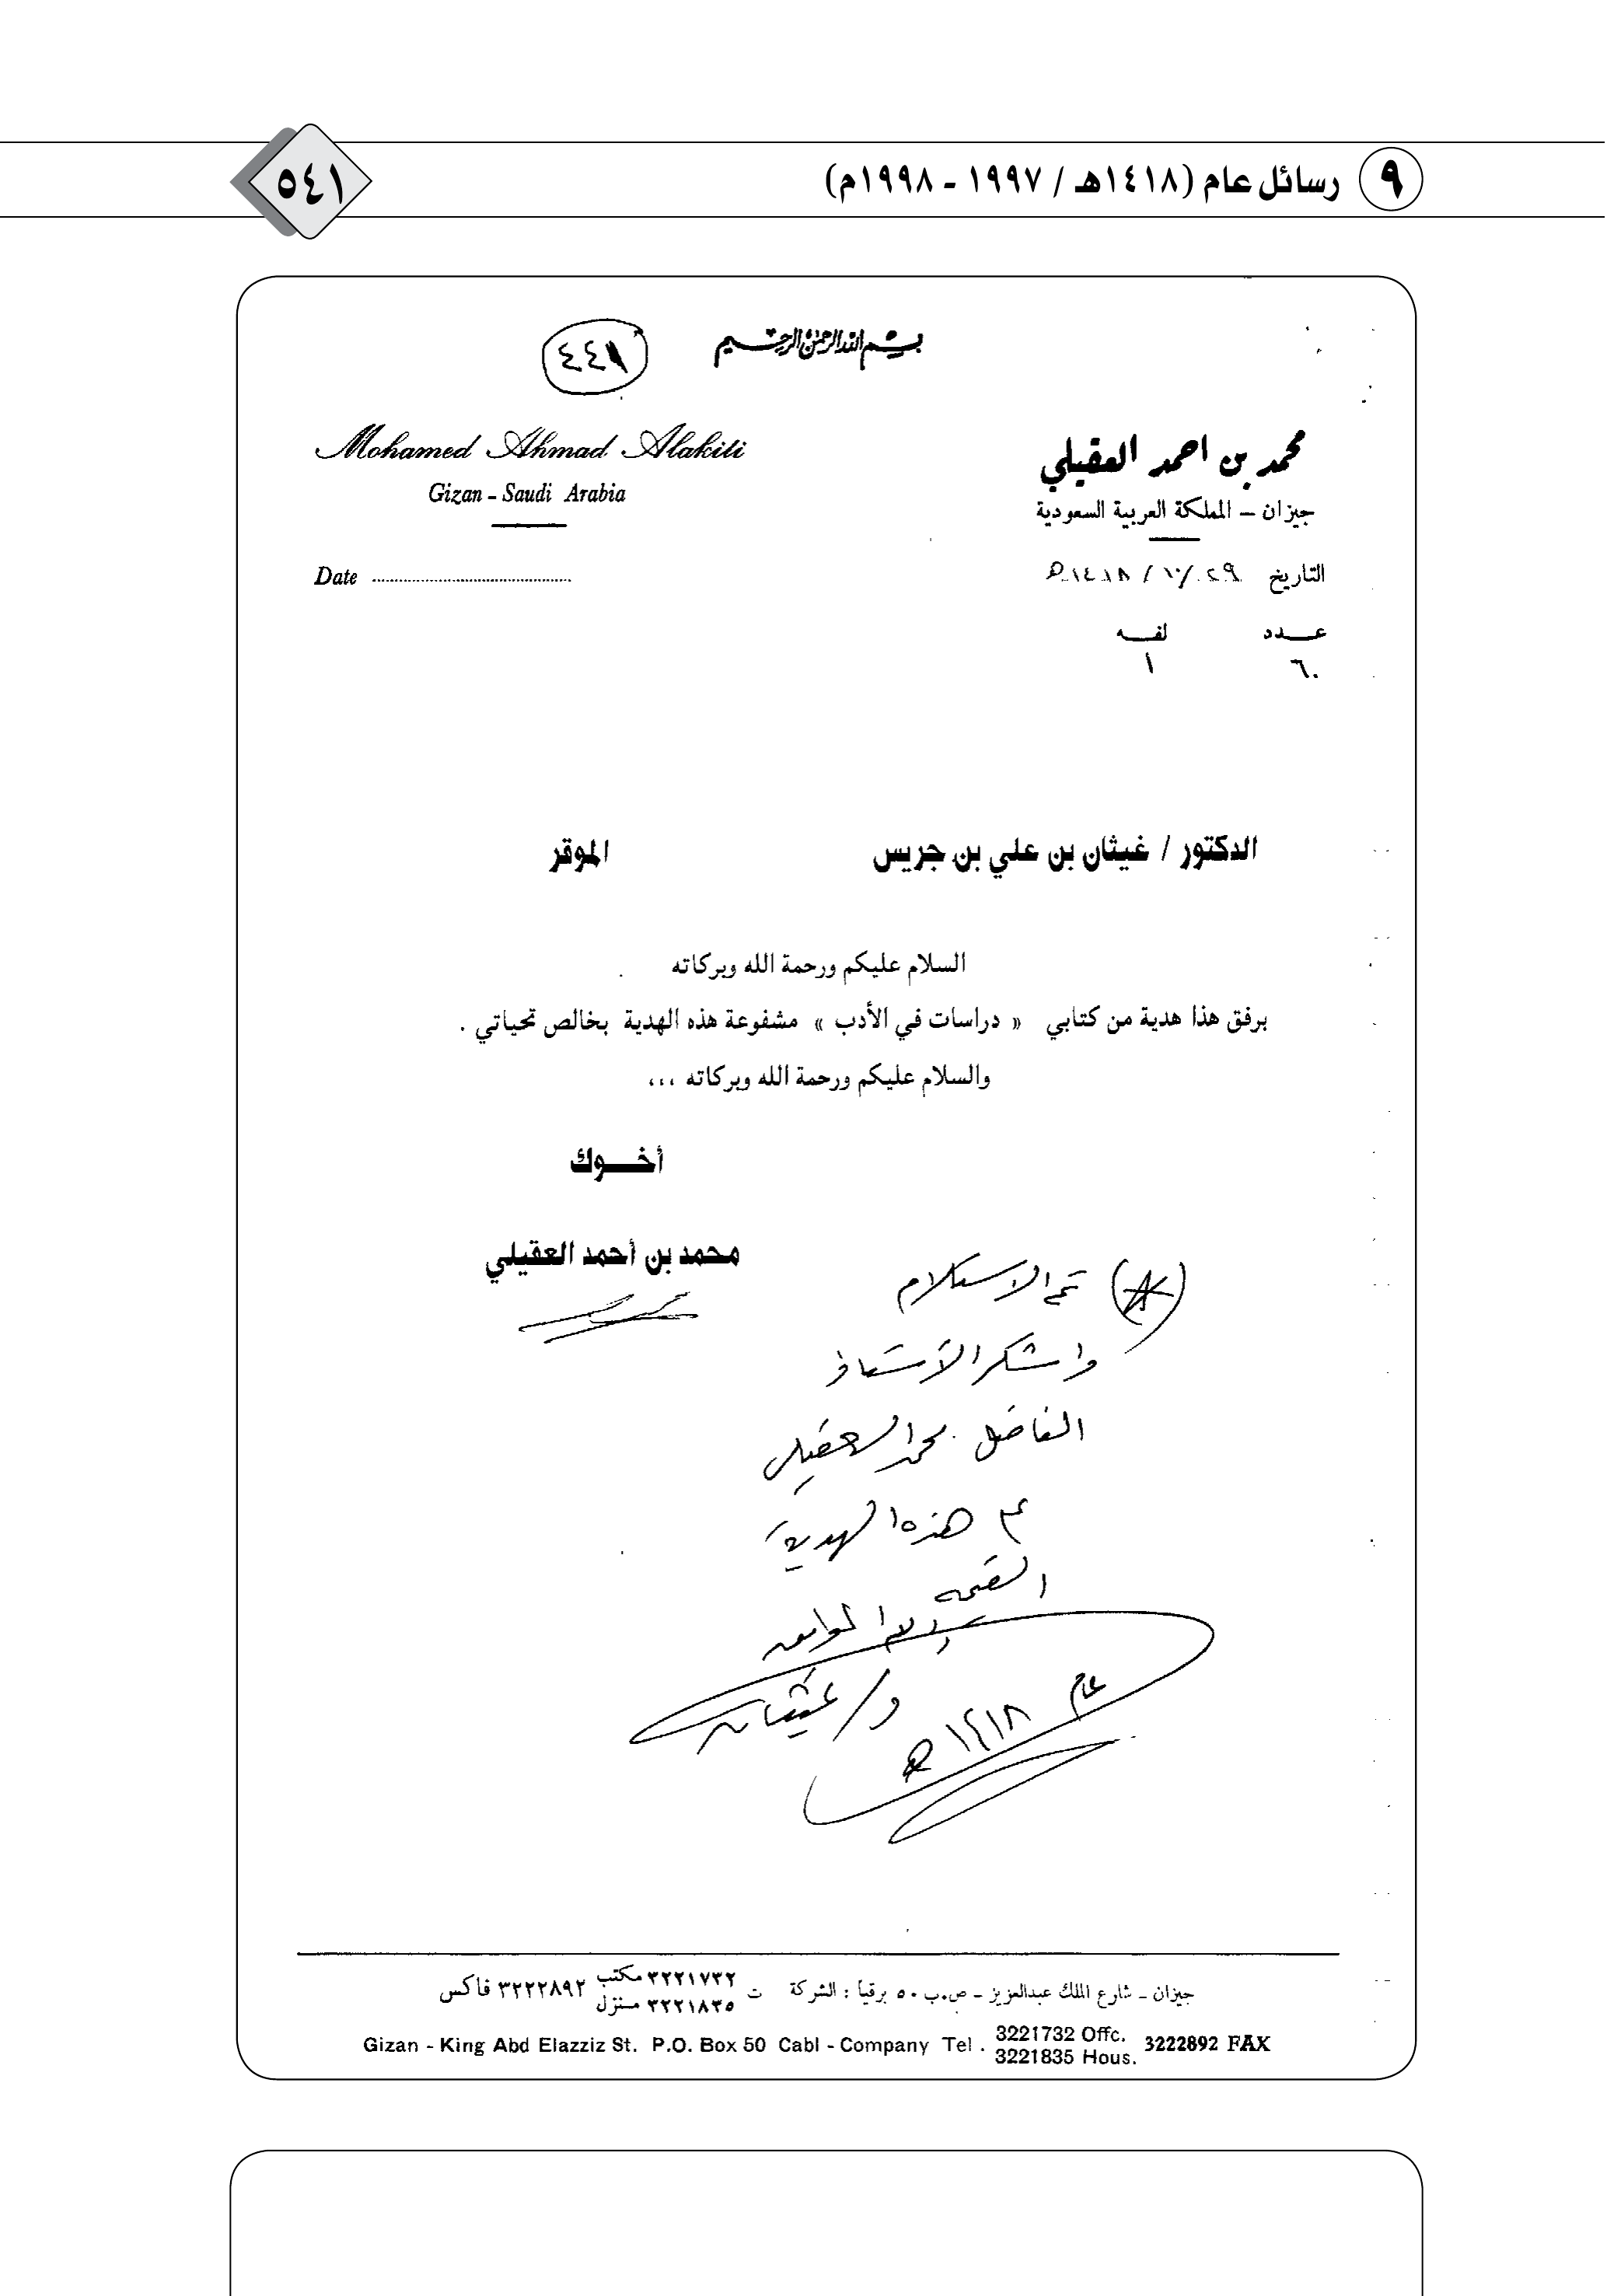 ٩ رسائل عام (١٤١٨هـ / ١٩٩٧ - ١٩٩٨م)
٥٤١
بسم الله الرحمن الرحيم
٤٤١
محمد بن احمد العقيلي
Mohamed Ahmad Alakili
جيزان – المملكة العربية السعودية
Gizan – Saudi Arabia
التاريخ ٢٩ / ١٠ / ١٤١٨هـ
Date
عــدد لفــه
٦٠ ١
الدكتور / غيثان بن علي بن جريس الموقر
السلام عليكم ورحمة الله وبركاته
برفق هذا هدية من كتابي « دراسات في الأدب » مشفوعة هذه الهدية بخالص تحياتي .
والسلام عليكم ورحمة الله وبركاته ،،،
أخـــوك
محمد بن أحمد العقيلي
تم الاستلام
واشكر الأستاذ
الفاضل محمد العقيلي
هذه الهدية
القيمة
د/ غيثان
عام ١٤١٨هـ
جيزان ـ شارع الملك عبدالعزيز ـ ص.ب ٥٠ برقيا : الشركة ت ٣٢٢١٧٣٢ مكتب ٣٢٢٢٨٩٢ فاكس
٣٢٢١٨٣٥ منزل
Gizan - King Abd Elazziz St. P.O. Box 50 Cabl - Company Tel . 3221732 Offc. 3222892 FAX
3221835 Hous.